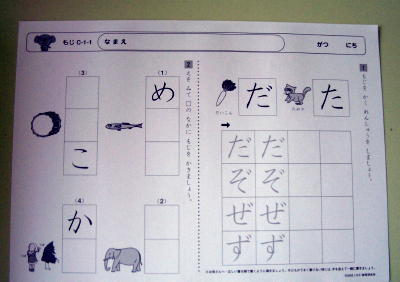 もじ C-1-1 なまえ がつ にち
1 もじを かく れんしゅうを しましょう。
た
だ
たぬき
だいこん
だ だ
ぞ ぞ
ぜ ぜ
ず ず
2 えを みて □の なかに もじを かきましょう。
(1)
め
(2)
(3)
こ
(4)
か